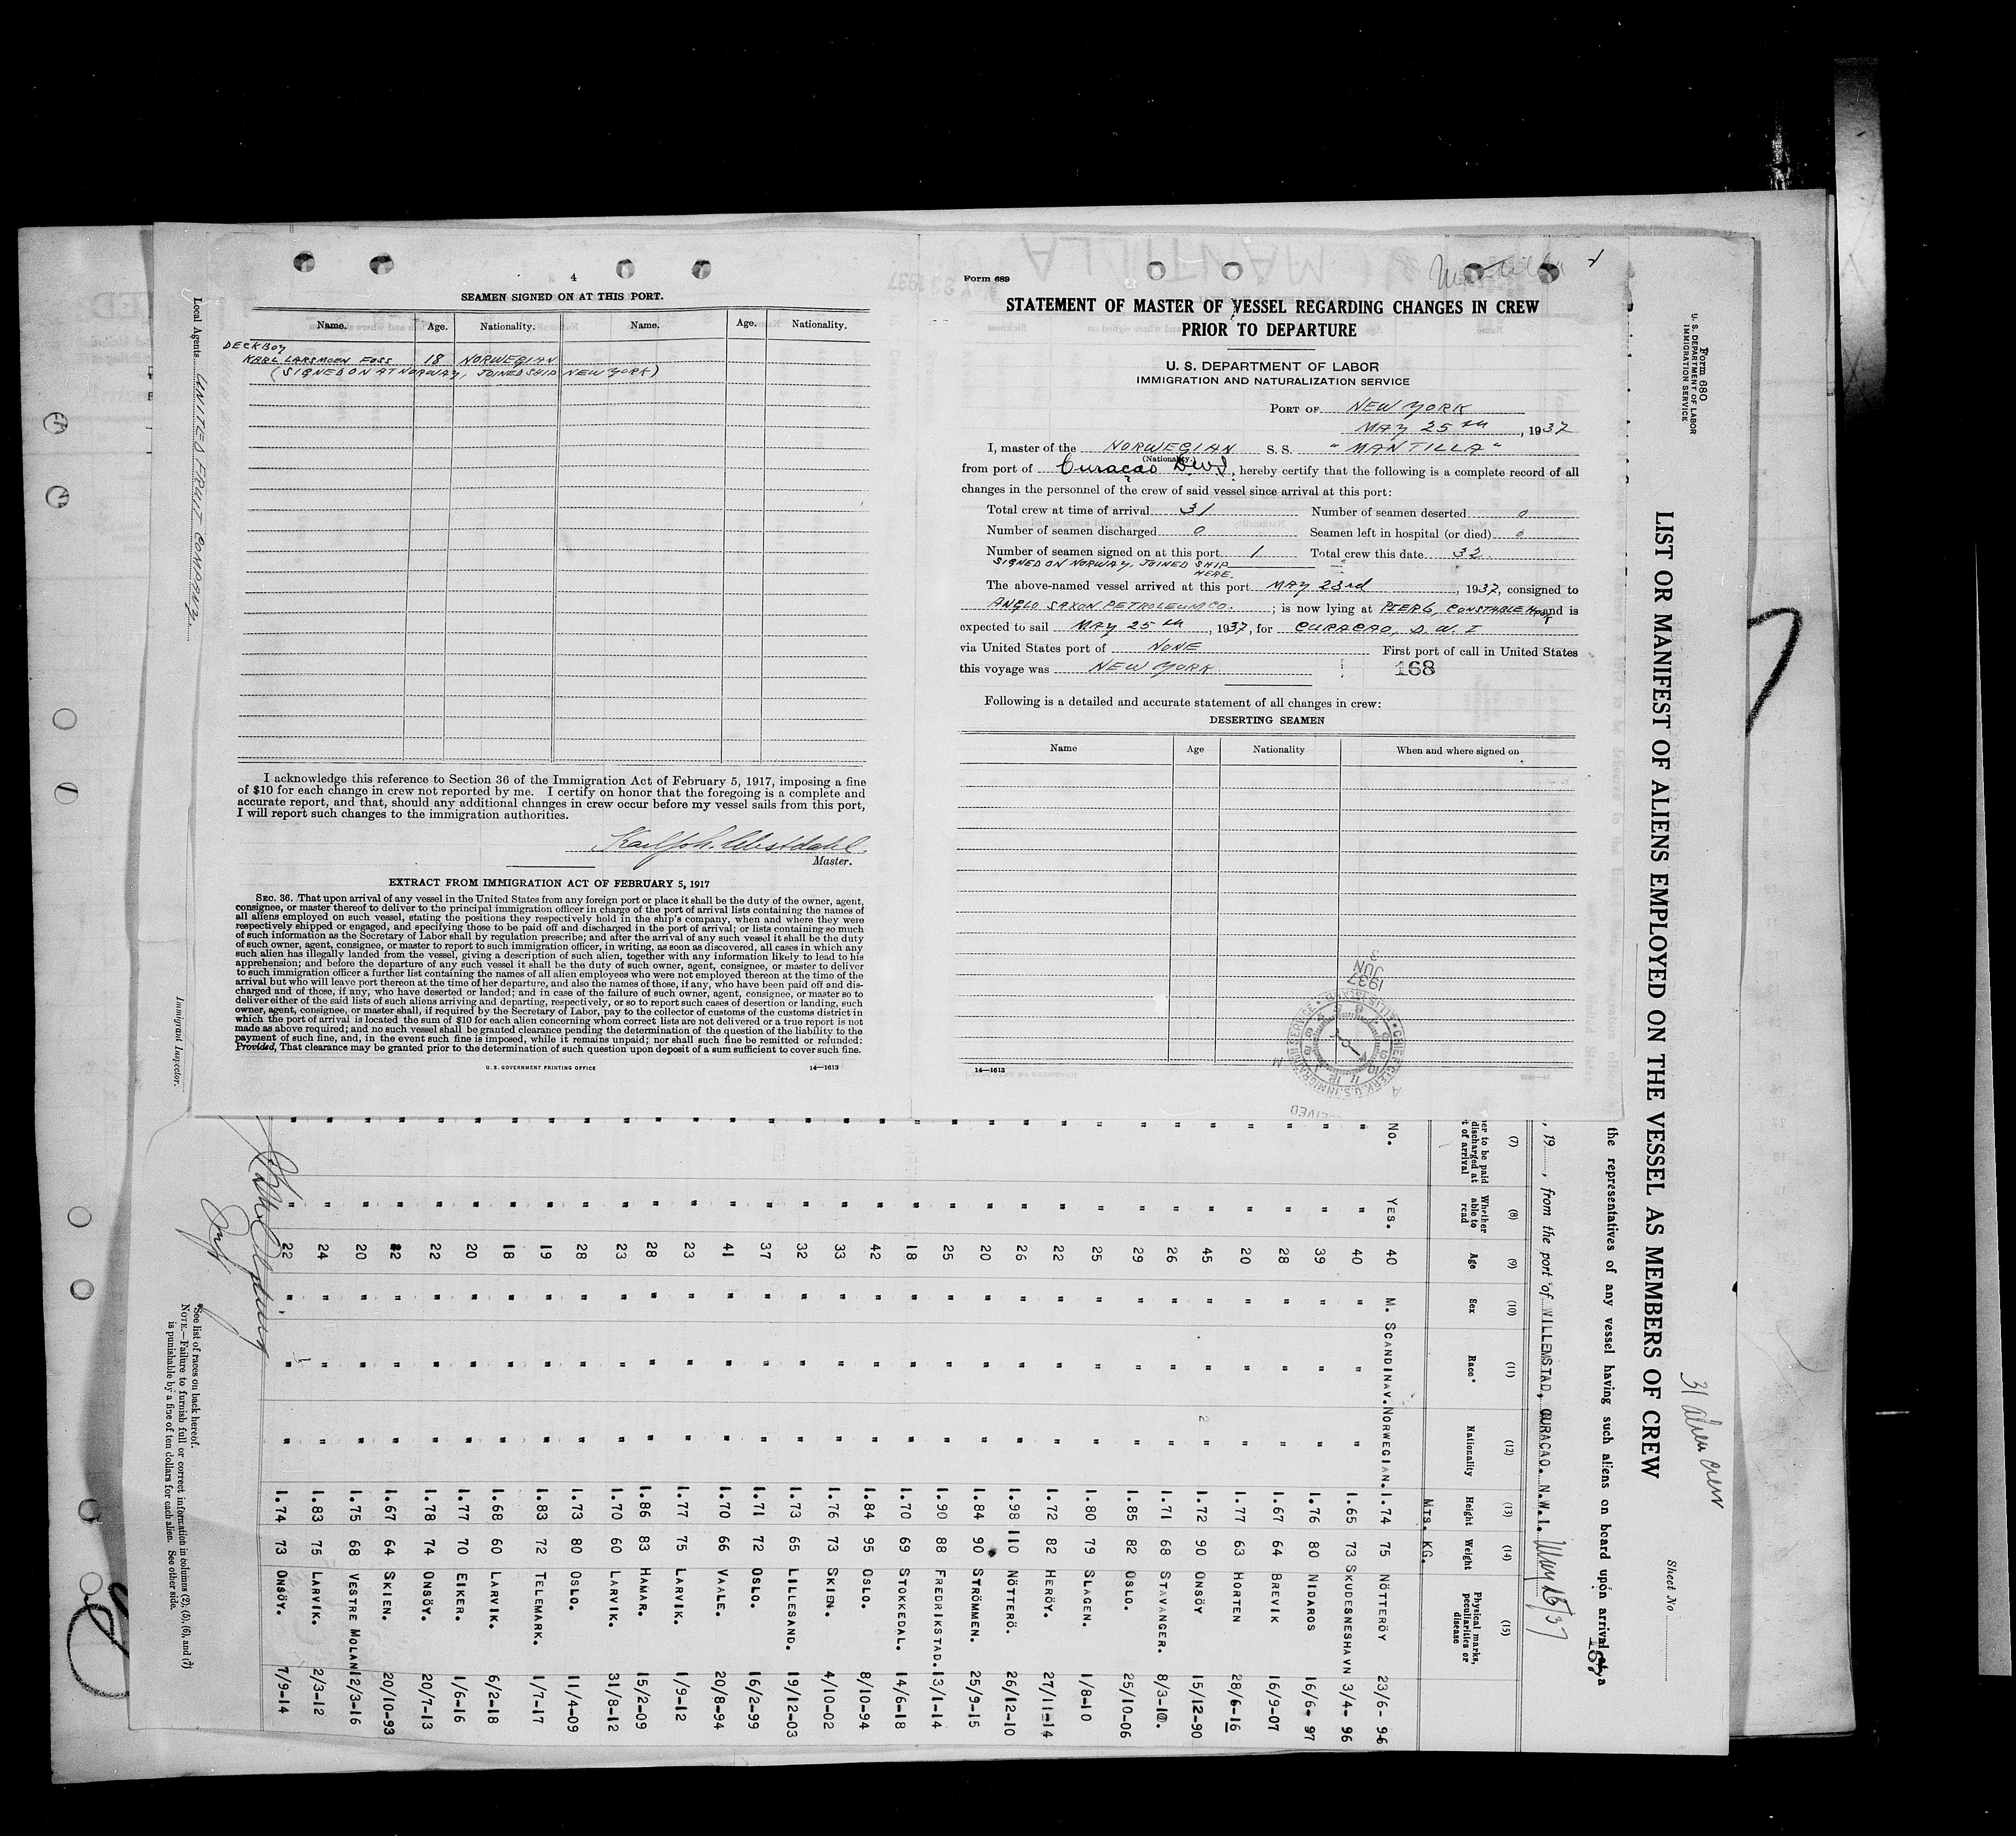 4
SEAMEN SIGNED ON AT THIS PORT.
Name. Age. Nationality. Name. Age. Nationality.
DECKBOY
KARL LARSMOEN FOSS 18 NORWEGIAN
(SIGNED ON AT NORWAY, JOINED SHIP NEW YORK)
I acknowledge this reference to Section 36 of the Immigration Act of February 5, 1917, imposing a fine
of $10 for each change in crew not reported by me. I certify on honor that the foregoing is a complete and
accurate report, and that, should any additional changes in crew occur before my vessel sails from this port,
I will report such changes to the immigration authorities.
Master.
EXTRACT FROM IMMIGRATION ACT OF FEBRUARY 5, 1917
SEC. 36. That upon arrival of any vessel in the United States from any foreign port or place it shall be the duty of the owner, agent,
consignee, or master thereof to deliver to the principal immigration officer in charge of the port of arrival lists containing the names of
all aliens employed on such vessel, stating the positions they respectively hold in the ship's company, when and where they were
respectively shipped or engaged, and specifying those to be paid off and discharged in the port of arrival; or lists containing so much
of such information as the Secretary of Labor shall by regulation prescribe; and after the arrival of any such vessel it shall be the duty
of such owner, agent, consignee, or master to report to such immigration officer, in writing, as soon as discovered, all cases in which any
such alien has illegally landed from the vessel, giving a description of such alien, together with any information likely to lead to his
apprehension; and before the departure of any such vessel it shall be the duty of such owner, agent, consignee, or master to deliver
to such immigration officer a further list containing the names of all alien employees who were not employed thereon at the time of the
arrival but who will leave port thereon at the time of her departure, and also the names of those, if any, who have been paid off and dis-
charged and of those, if any, who have deserted or landed; and in case of the failure of such owner, agent, consignee, or master so to
deliver either of the said lists of such aliens arriving and departing, respectively, or so to report such cases of desertion or landing, such
owner, agent, consignee, or master shall, if required by the Secretary of Labor, pay to the collector of customs of the customs district in
which the port of arrival is located the sum of $10 for each alien concerning whom correct lists are not delivered or a true report is not
made as above required; and no such vessel shall be granted clearance pending the determination of the question of the liability to the
payment of such fine, and, in the event such fine is imposed, while it remains unpaid; nor shall such fine be remitted or refunded:
Provided, That clearance may be granted prior to the determination of such question upon deposit of a sum sufficient to cover such fine.
U.S. GOVERNMENT PRINTING OFFICE 14—1613
Form 689
Mantilla
STATEMENT OF MASTER OF VESSEL REGARDING CHANGES IN CREW
PRIOR TO DEPARTURE
U. S. DEPARTMENT OF LABOR
IMMIGRATION AND NATURALIZATION SERVICE
PORT OF NEW YORK
MAY 25th, 1937
I, master of the NORWEGIAN S. S. "MANTILLA"
(Nationality)
from port of Curaçao DWI, hereby certify that the following is a complete record of all
changes in the personnel of the crew of said vessel since arrival at this port:
Total crew at time of arrival 31 Number of seamen deserted 0
Number of seamen discharged 0 Seamen left in hospital (or died) 0
Number of seamen signed on at this port 1 Total crew this date 32
SIGNED ON NORWAY, JOINED SHIP
HERE.
The above-named vessel arrived at this port MAY 23rd, 1937, consigned to
ANGLO SAXON PETROLEUM CO.; is now lying at PIER 6, CONSTABLE HOOK and is
expected to sail MAY 25th, 1937, for CURACAO, D.W.I
via United States port of NONE First port of call in United States
this voyage was NEW YORK
168
Following is a detailed and accurate statement of all changes in crew:
DESERTING SEAMEN
Name Age Nationality When and where signed on
14—1613
1937
JUN
3
CHIEF CLERK, U.S. IMMIGRATION SERVICE
Local Agents UNITED FRUIT COMPANY.
Immigrant Inspector.
Form 680
U. S. DEPARTMENT OF LABOR
IMMIGRATION SERVICE
LIST OR MANIFEST OF ALIENS EMPLOYED ON THE VESSEL AS MEMBERS OF CREW
31 alien crew
Sheet No
the representatives of any vessel having such aliens on board upon arrival at a
167
, 19 , from the port of WILLEMSTAD, CURACAO. N.W.I. May 15/37
(7) (8) (9) (10) (11) (12) (13) (14) (15)
Whether able to read Age Sex Race* Nationality Height Weight Physical marks, peculiarities or disease
MTS. KG.
No. YES. 40 M. SCANDINAV. NORWEGIAN. 1.74 75 NÖTTERÖY 23/6-96
" " 40 " " " 1.65 73 SKUDESNESHAVN 3/4-96
" " 39 " " " 1.76 80 NIDAROS 16/6-97
" " 28 " " " 1.67 64 BREVIK 16/9-07
" " 20 " " " 1.77 63 HORTEN 28/6-16
" " 45 " " " 1.72 90 ONSÖY 15/12-90
" " 26 " " " 1.71 68 STAVANGER. 8/3-10.
" " 29 " " " 1.85 82 OSLO. 25/10-06
" " 25 " " " 1.80 79 SLAGEN. 1/8-10
" " 22 " " " 1.72 82 HERÖY. 27/11-14
" " 26 " " " 1.98 110 NÖTTERÖ. 26/12-10
" " 20 " " " 1.84 90 STRÖMMEN. 25/9-15
" " 25 " " " 1.90 88 FREDRIKSTAD. 13/1-14
" " 18 " " " 1.70 69 STOKKEDAL. 14/6-18
" " 42 " " " 1.84 95 OSLO. 8/10-94
" " 33 " " " 1.76 73 SKIEN. 4/10-02
" " 32 " " " 1.73 65 LILLESAND. 19/12-03
" " 37 " " " 1.71 72 OSLO. 16/2-99
" " 41 " " " 1.70 66 VAALE. 20/8-94
" " 23 " " " 1.77 75 LARVIK. 1/9-12
" " 28 " " " 1.86 83 HAMAR. 15/2-09
" " 23 " " " 1.70 60 LARVIK. 31/8-12
" " 28 " " " 1.73 80 OSLO. 11/4-09
" " 19 " " " 1.83 72 TELEMARK. 1/7-17
" " 18 " " " 1.68 60 LARVIK. 6/2-18
" " 20 " " " 1.77 70 EIKER. 1/6-16
" " 22 " " " 1.78 74 ONSÖY. 20/7-13
" " " " " 1.67 64 SKIEN. 20/10-93
" " 20 " " " 1.75 68 VESTRE MOLAN 12/3-16
" " 24 " " " 1.83 75 LARVIK. 2/3-12
" " 22 " " " 1.74 73 ONSÖY. 7/9-14
*See list of races on back hereof.
NOTE.—Failure to furnish full or correct information in columns (2), (5), (6), and (7)
is punishable by a fine of ten dollars for each alien. See other side.